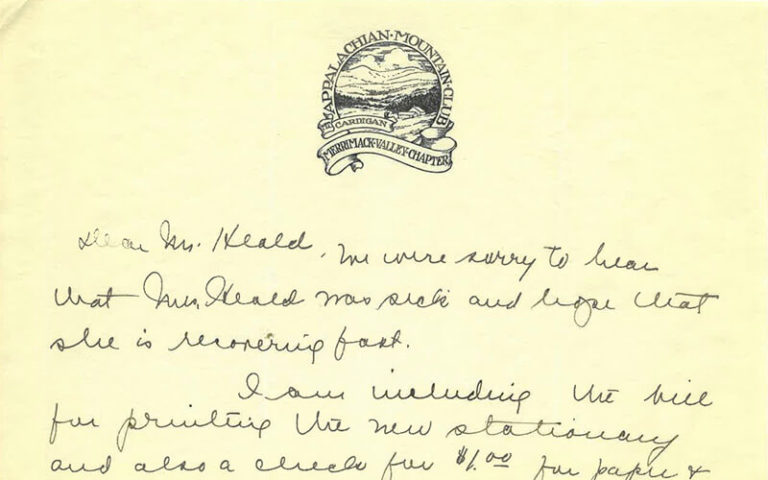 APPALACHIAN·MOUNTAIN·CLUB
CARDIGAN
MERRIMACK·VALLEY·CHAPTER
Dear Mr. Heald, We were sorry to hear
that Mrs. Heald was sick and hope that
she is recovering fast.
I am including the bill
for printing the new stationary
and also a check for $1.00 for paper &